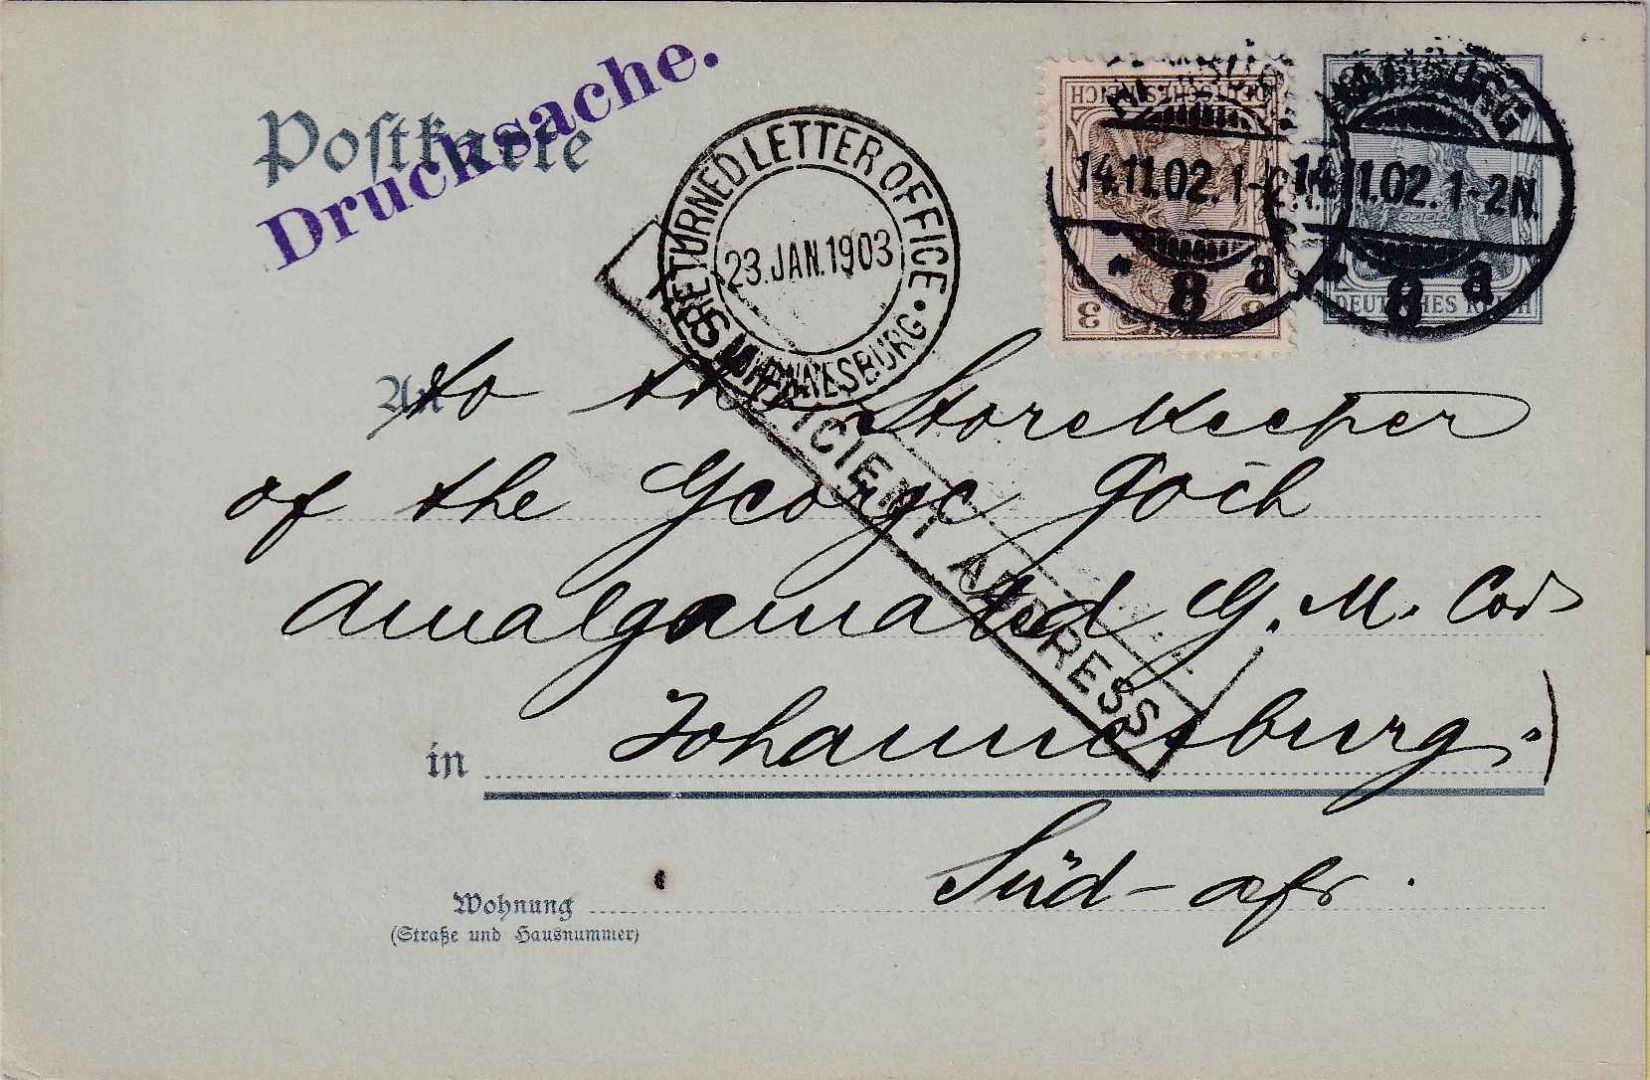 Postkarte
Drucksache.
RETURNED LETTER OFFICE
23.JAN.1903
JOHANNESBURG
DEUTSCHES REICH
3 3
14.11.02.1-2N.
* 8 a
HAMBURG
14.11.02.1-2N.
* 8 a
DEUTSCHES REICH
INSUFFICIENT ADDRESS
An to the Storekeeper
of the George Goch
Amalgamated G. M. Co
in Johannesburg.)
Süd-afr.
Wohnung
(Straße und Hausnummer)